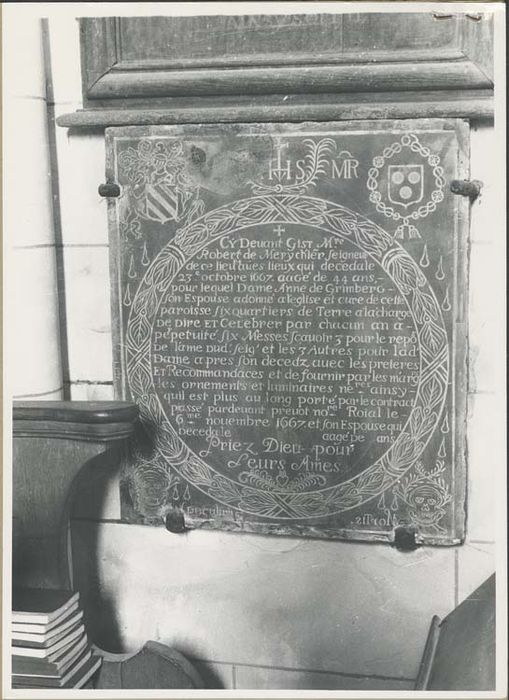 IHS MR
CY Devant Gist Mre
Robert de Meryckler seigneur
de ce lieu
lieux qui deceda le
23e octobre 1667 aagé de 44 ans,
pour lequel Dame Anne de Grimberg
son Espouse a donné a leglise et cure de cette
paroisse six quartiers de Terre a la charge
de dire et celebrer par chacun an a
pepetuité six Messes scauoir 3 pour le repos
de lame dud. seigr et les 3 Autres pour lad
Dame apres son decedz auec les preieres
Et Recommandaces et de fournir par les marg
les ornements et luminaires nere ainsy
quil est plus au long porté par le contract
passé pardeuant preuot nore Roial le
6me nouembre 1667. et son Espouse qui
deceda le aagée de ans
Priez Dieu pour
Leurs Ames